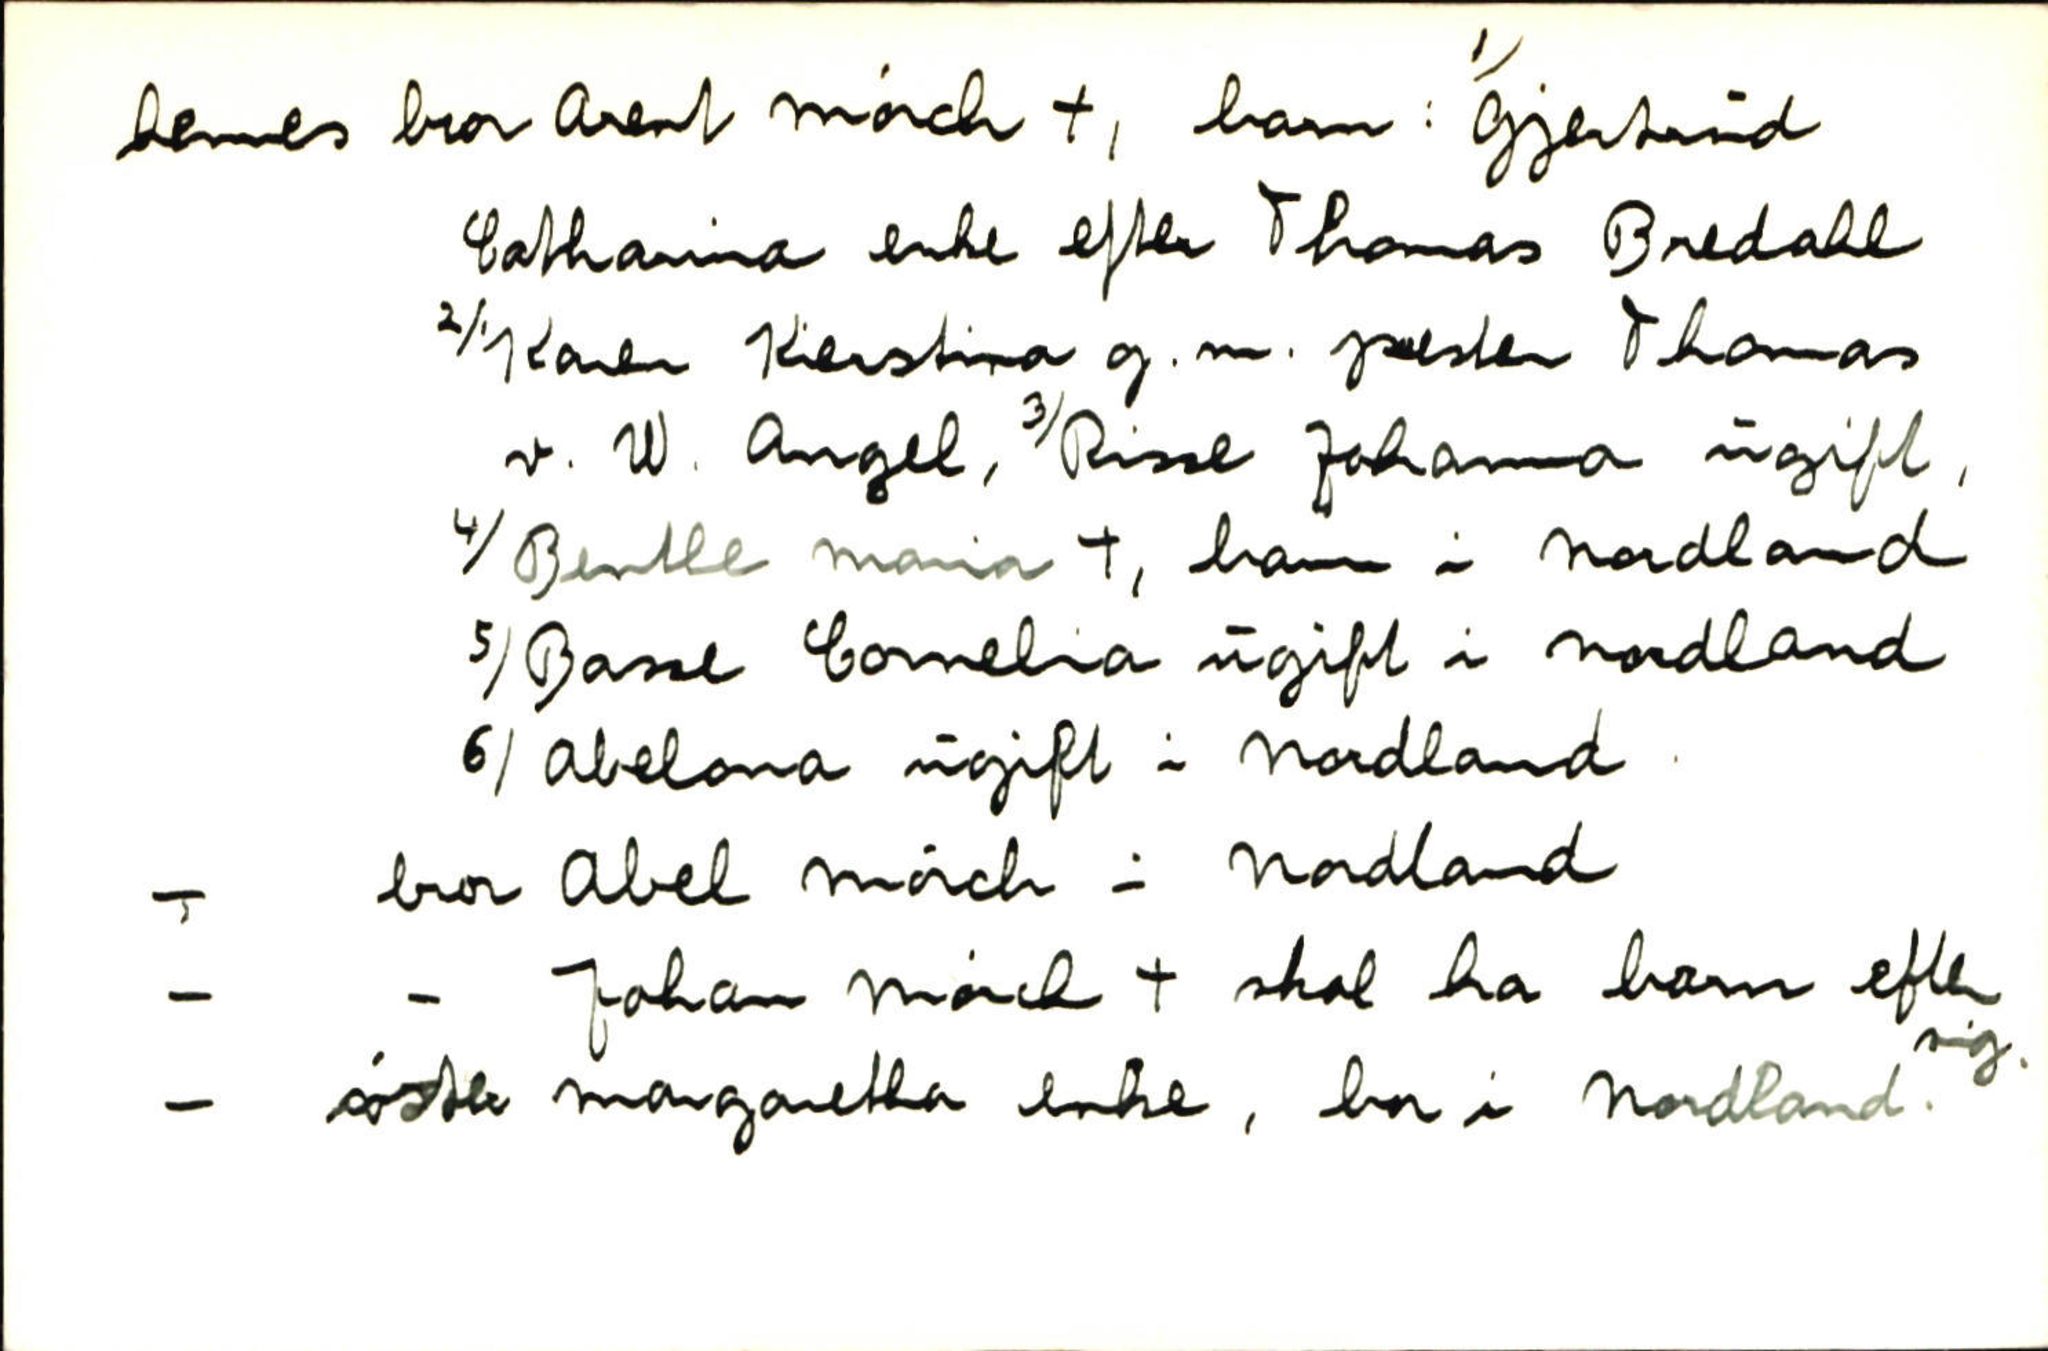 hennes bror Arent Mörch +, barn: 1/ Gjertrud
Catharina enke efter Thomas Bredahl
2/ Karen Kierstina g. m. prester Thomas
v. W. Angel, 3/ Risse Johanna ugift,
4/ Benthe Maria +, barn i Nordland
5/ Basse Cornelia ugift i Nordland
6/ Abelona ugift i Nordland.
- bror Abel Mörch i Nordland
- - Johan Mörch + skal ha barn efter sig.
- söster Margaretha enke, bor i Nordland.